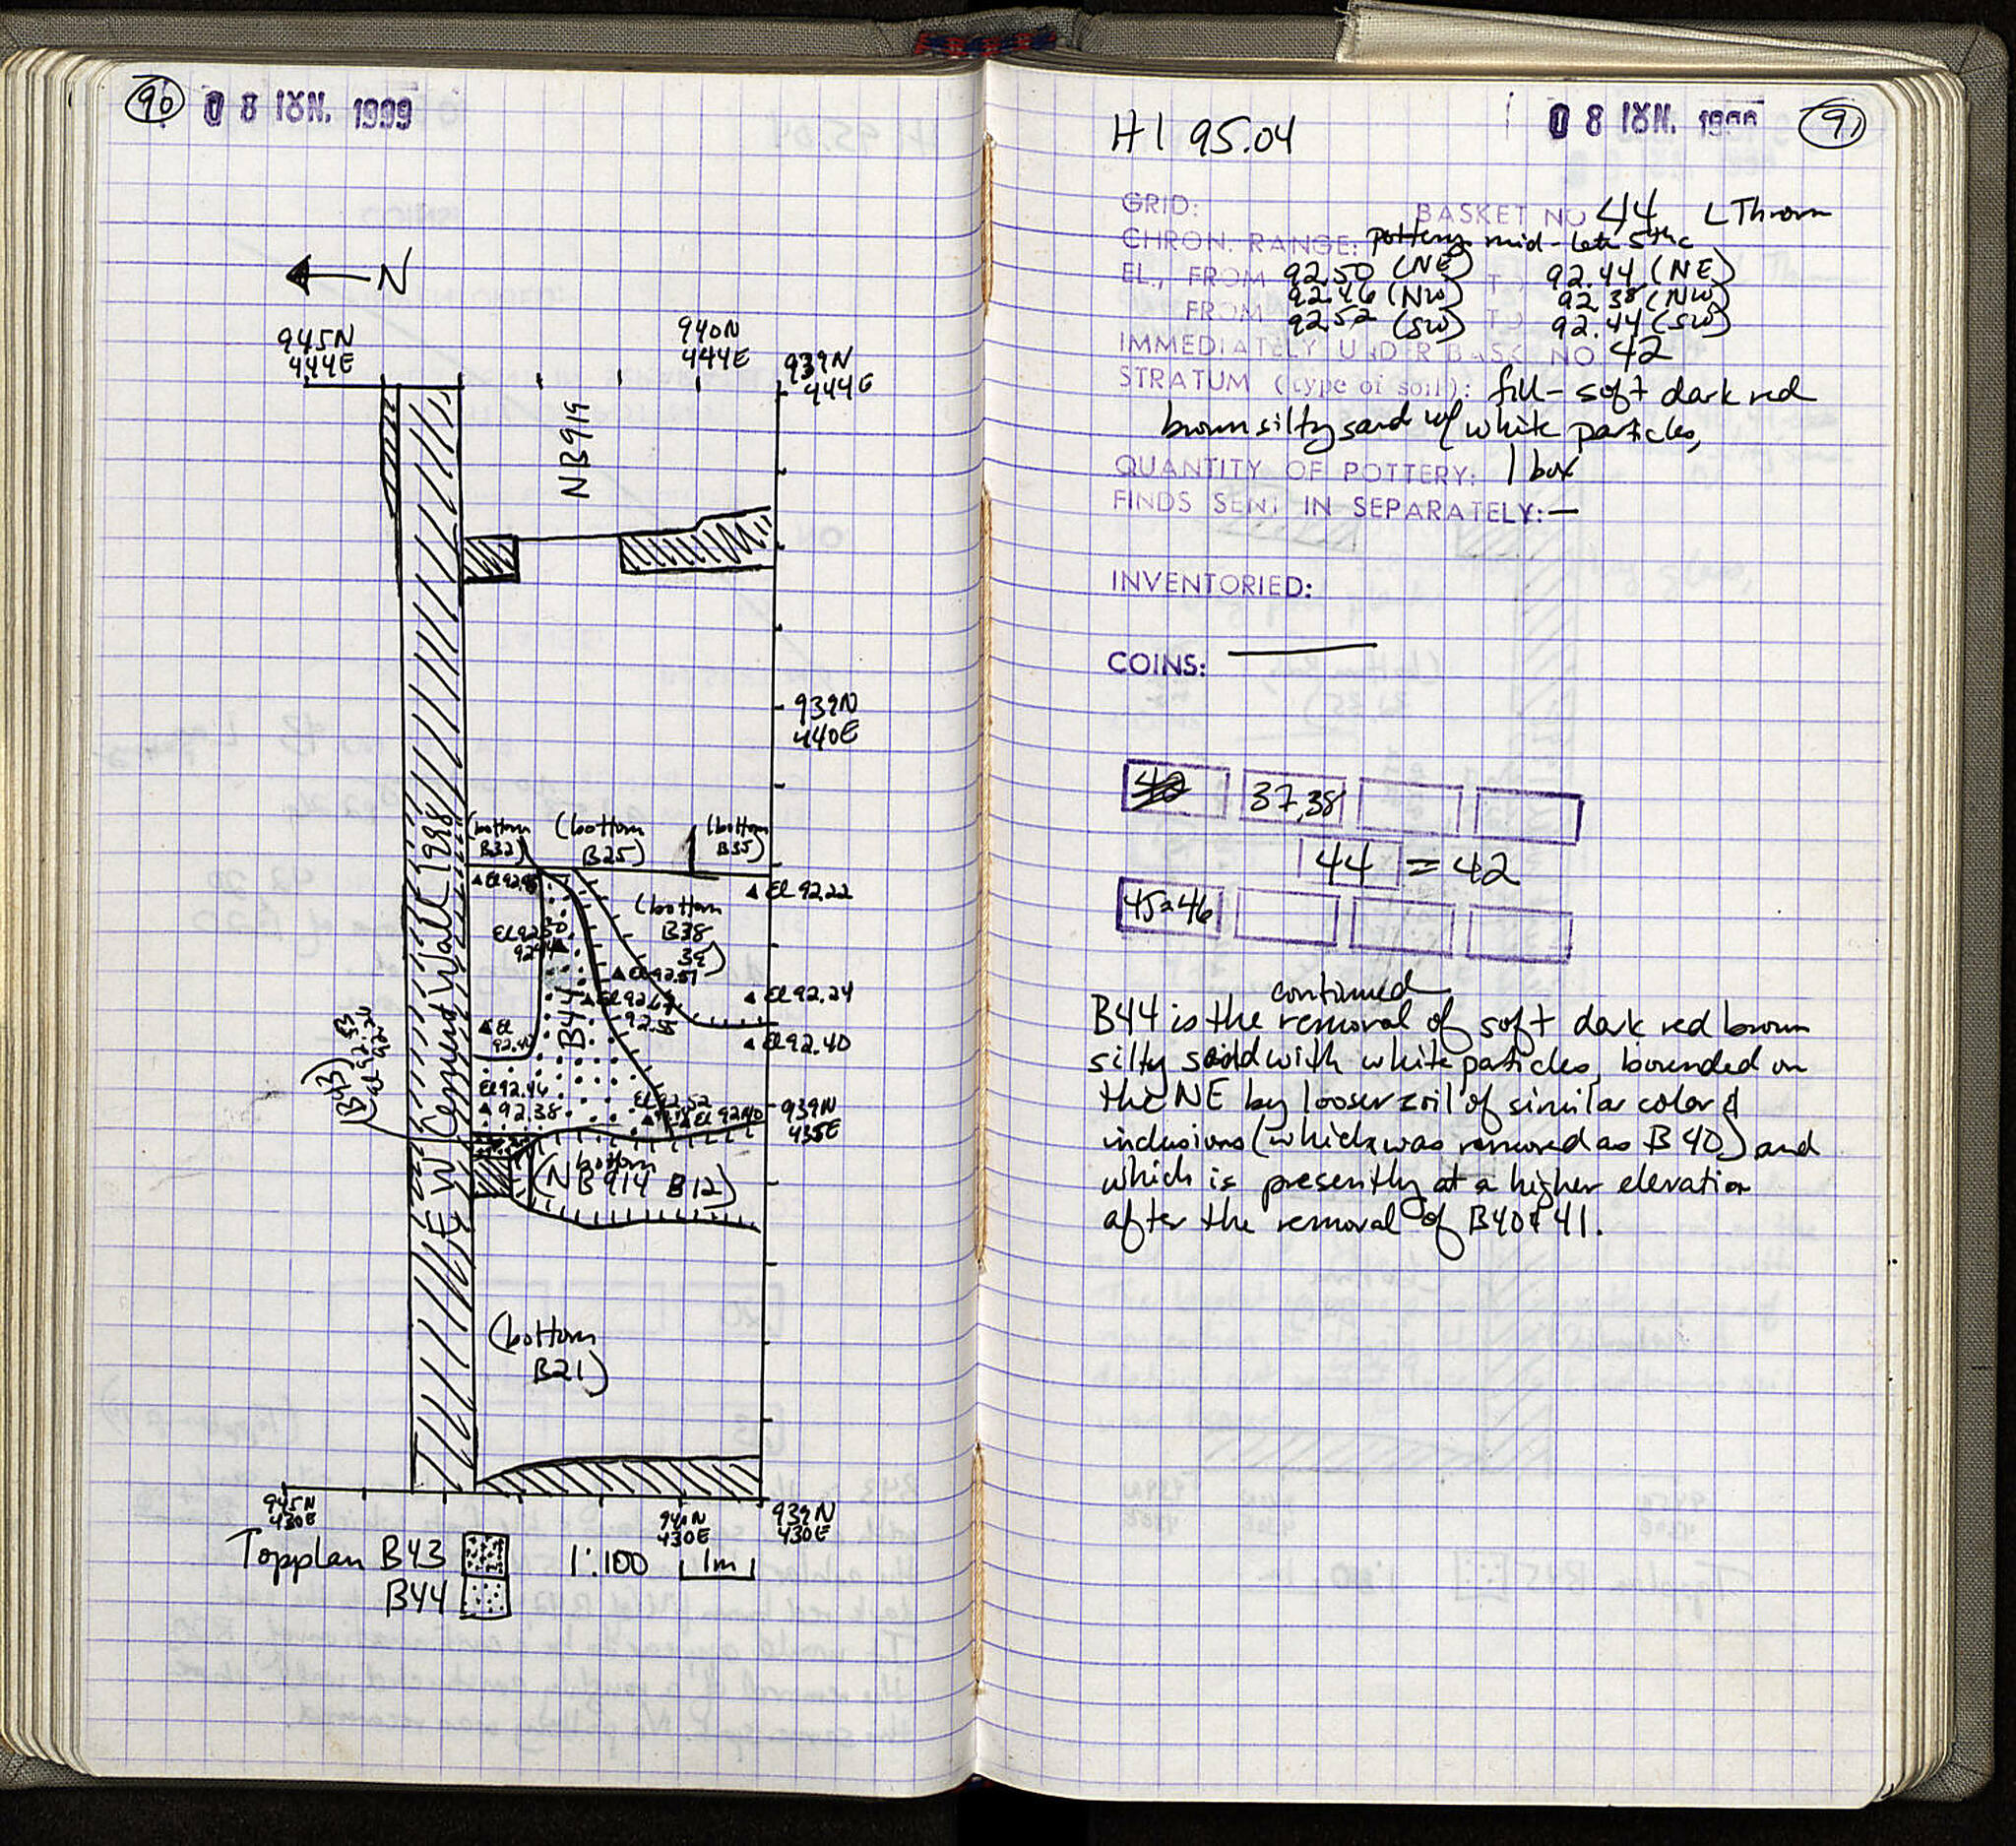 90 08 ΙΟΥΝ. 1999
N
945N
444E
940N
444E
939N
444E
NB919
939N
440E
E-W Cement Wall (1998)
(bottom
B32)
(bottom
B25)
(bottom
B35)
El 92.22
(bottom
B38
39)
El 92.50
92.44
El 92.51
El 92.62
92.55
El 92.24
B44
El
El 92.40
(B43)
El 92.46
92.38
El 92.52
El 92.40
939N
435E
(bottom
NB914 B12)
(bottom
B21)
945N
430E
940N
430E
939N
430E
Topplan B43 1:100 1m
B44
08 ΙΟΥΝ. 1999 91
H1 95.04
GRID: BASKET NO 44 L Thrown
CHRON. RANGE: pottery mid-late 5thc
EL., FROM 92.50 (NE) TO 92.44 (NE)
92.46 (NW) 92.38 (NW)
FROM 92.52 (SW) TO 92.44 (SW)
IMMEDIATELY UNDER BASK. NO. 42
STRATUM (type of soil): fill - soft dark red
brown silty sand w/ white particles,
QUANTITY OF POTTERY: 1 box
FINDS SENT IN SEPARATELY: —
INVENTORIED:
COINS: —
42 37,38
44 = 42
45=46
continued
B44 is the removal of soft dark red brown
silty sand with white particles, bounded on
the NE by looser soil of similar color &
inclusions (which was removed as B40) and
which is presently at a higher elevation
after the removal of B40 & 41.